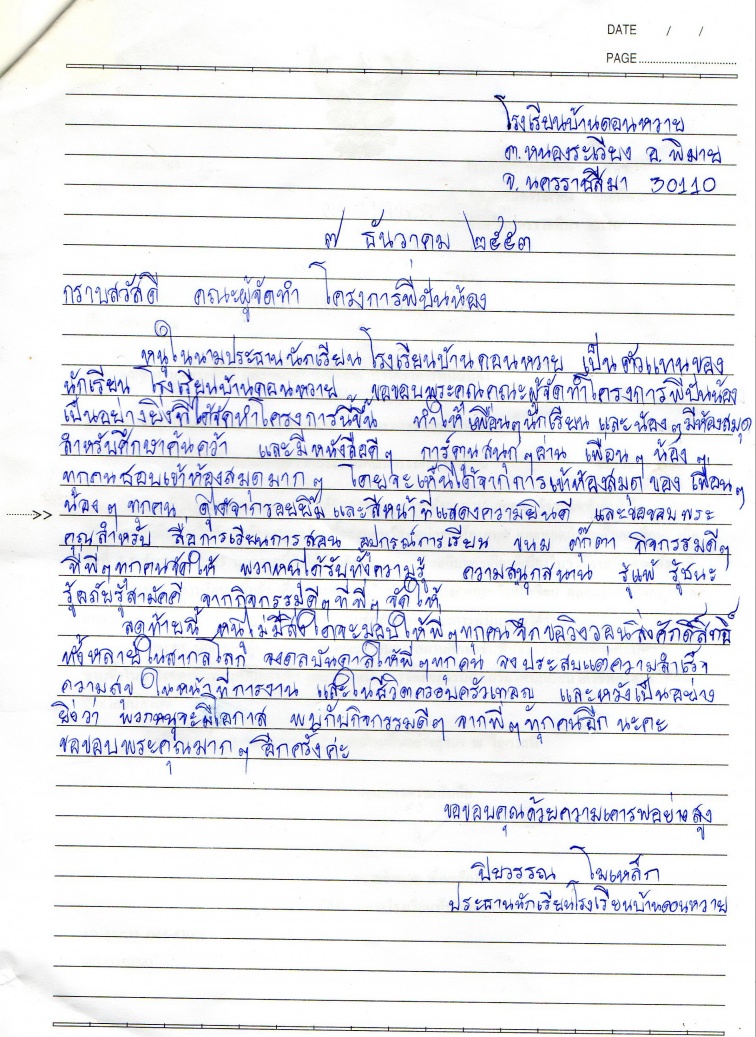 DATE / /
PAGE
โรงเรียนบ้านดอนหวาย
ต.หนองระเวียง อ.พิมาย
จ.นครราชสีมา 30110
๗ ธันวาคม ๒๕๕๓
กราบสวัสดี คณะผู้จัดทำ โครงการพี่ปันน้อง
หนูในนามประธานนักเรียนโรงเรียนบ้านดอนหวาย เป็นตัวแทนของ
นักเรียน โรงเรียนบ้านดอนหวาย ขอขอบพระคุณคณะผู้จัดทำโครงการพี่ปันน้อง
เป็นอย่างยิ่งที่ได้จัดทำโครงการนี้ขึ้น ทำให้เพื่อนๆนักเรียน และน้องๆมีห้องสมุด
สำหรับศึกษาค้นคว้า และมีหนังสือดีๆ การ์ตูนสนุกๆอ่าน เพื่อนๆ น้องๆ
ทุกคนชอบเข้าห้องสมุดมากๆ โดยจะเห็นได้จากการเข้าห้องสมุดของ เพื่อนๆ
>> น้องๆ ทุกคน ดูได้จากรอยยิ้ม และสีหน้าที่แสดงความยินดี และขอขอบพระ
คุณสำหรับ สื่อการเรียนการสอน อุปกรณ์การเรียน ขนม ตุ๊กตา กิจกรรมดีๆ
ที่พี่ๆทุกคนจัดให้ พวกหนูได้รับทั้งความรู้ ความสนุกสนาน รู้แพ้ รู้ชนะ
รู้อภัยรู้สามัคคี จากกิจกรรมดีๆที่พี่ๆ จัดให้
สุดท้ายนี้ หนูไม่มีสิ่งใดจะมอบให้พี่ๆทุกคนจึกขอวิงวอนสิ่งศักดิ์สิทธิ์
ทั้งหลายในสากลโลก จงดลบันดาลให้พี่ๆทุกคน จงประสมแต่ความสำเร็จ
ความสุข ในหน้าที่การงาน และในชีวิตครอบครัวเทอญ และหวังเป็นอย่าง
ยิ่งว่า พวกหนูจะมีโอกาส พบกับกิจกรรมดีๆ จากพี่ๆทุกคนอีก นะคะ
ขอขอบพระคุณมากๆ อีกครั้งค่ะ
ขอขอบคุณด้วยความเคารพอย่างสูง
ปิยวรรณ โมเหล็ก
ประธานนักเรียนโรงเรียนบ้านดอนหวาย